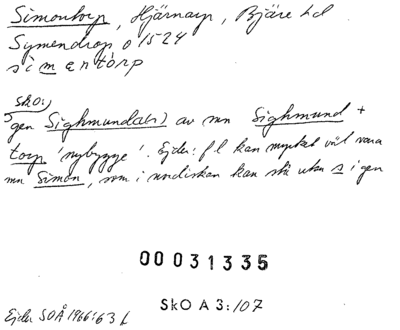 Simontorp, Hjärnarp, Bjäre hd
Symendrop o 1524
simantorp
SkO:
gen Sighmunda(r) av mn Sighmund +
torp 'nybygge'. Ejder: fl kan mycket väl vara
mn Simon, som i nordiskan kan stå utan s i gen
00031335
SkO A 3:107
Ejder SOÅ 1966:63 f